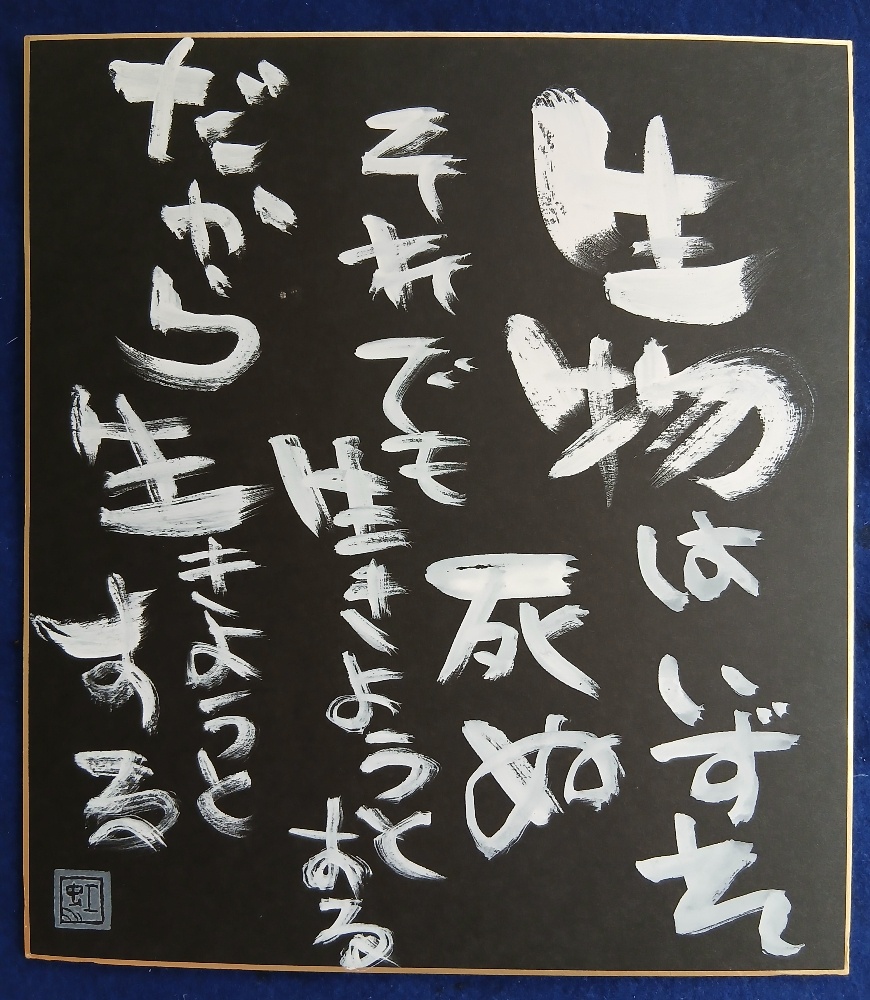 生物はいずれ
死ぬ
それでも
生きようとする
だから生きようとする
虹